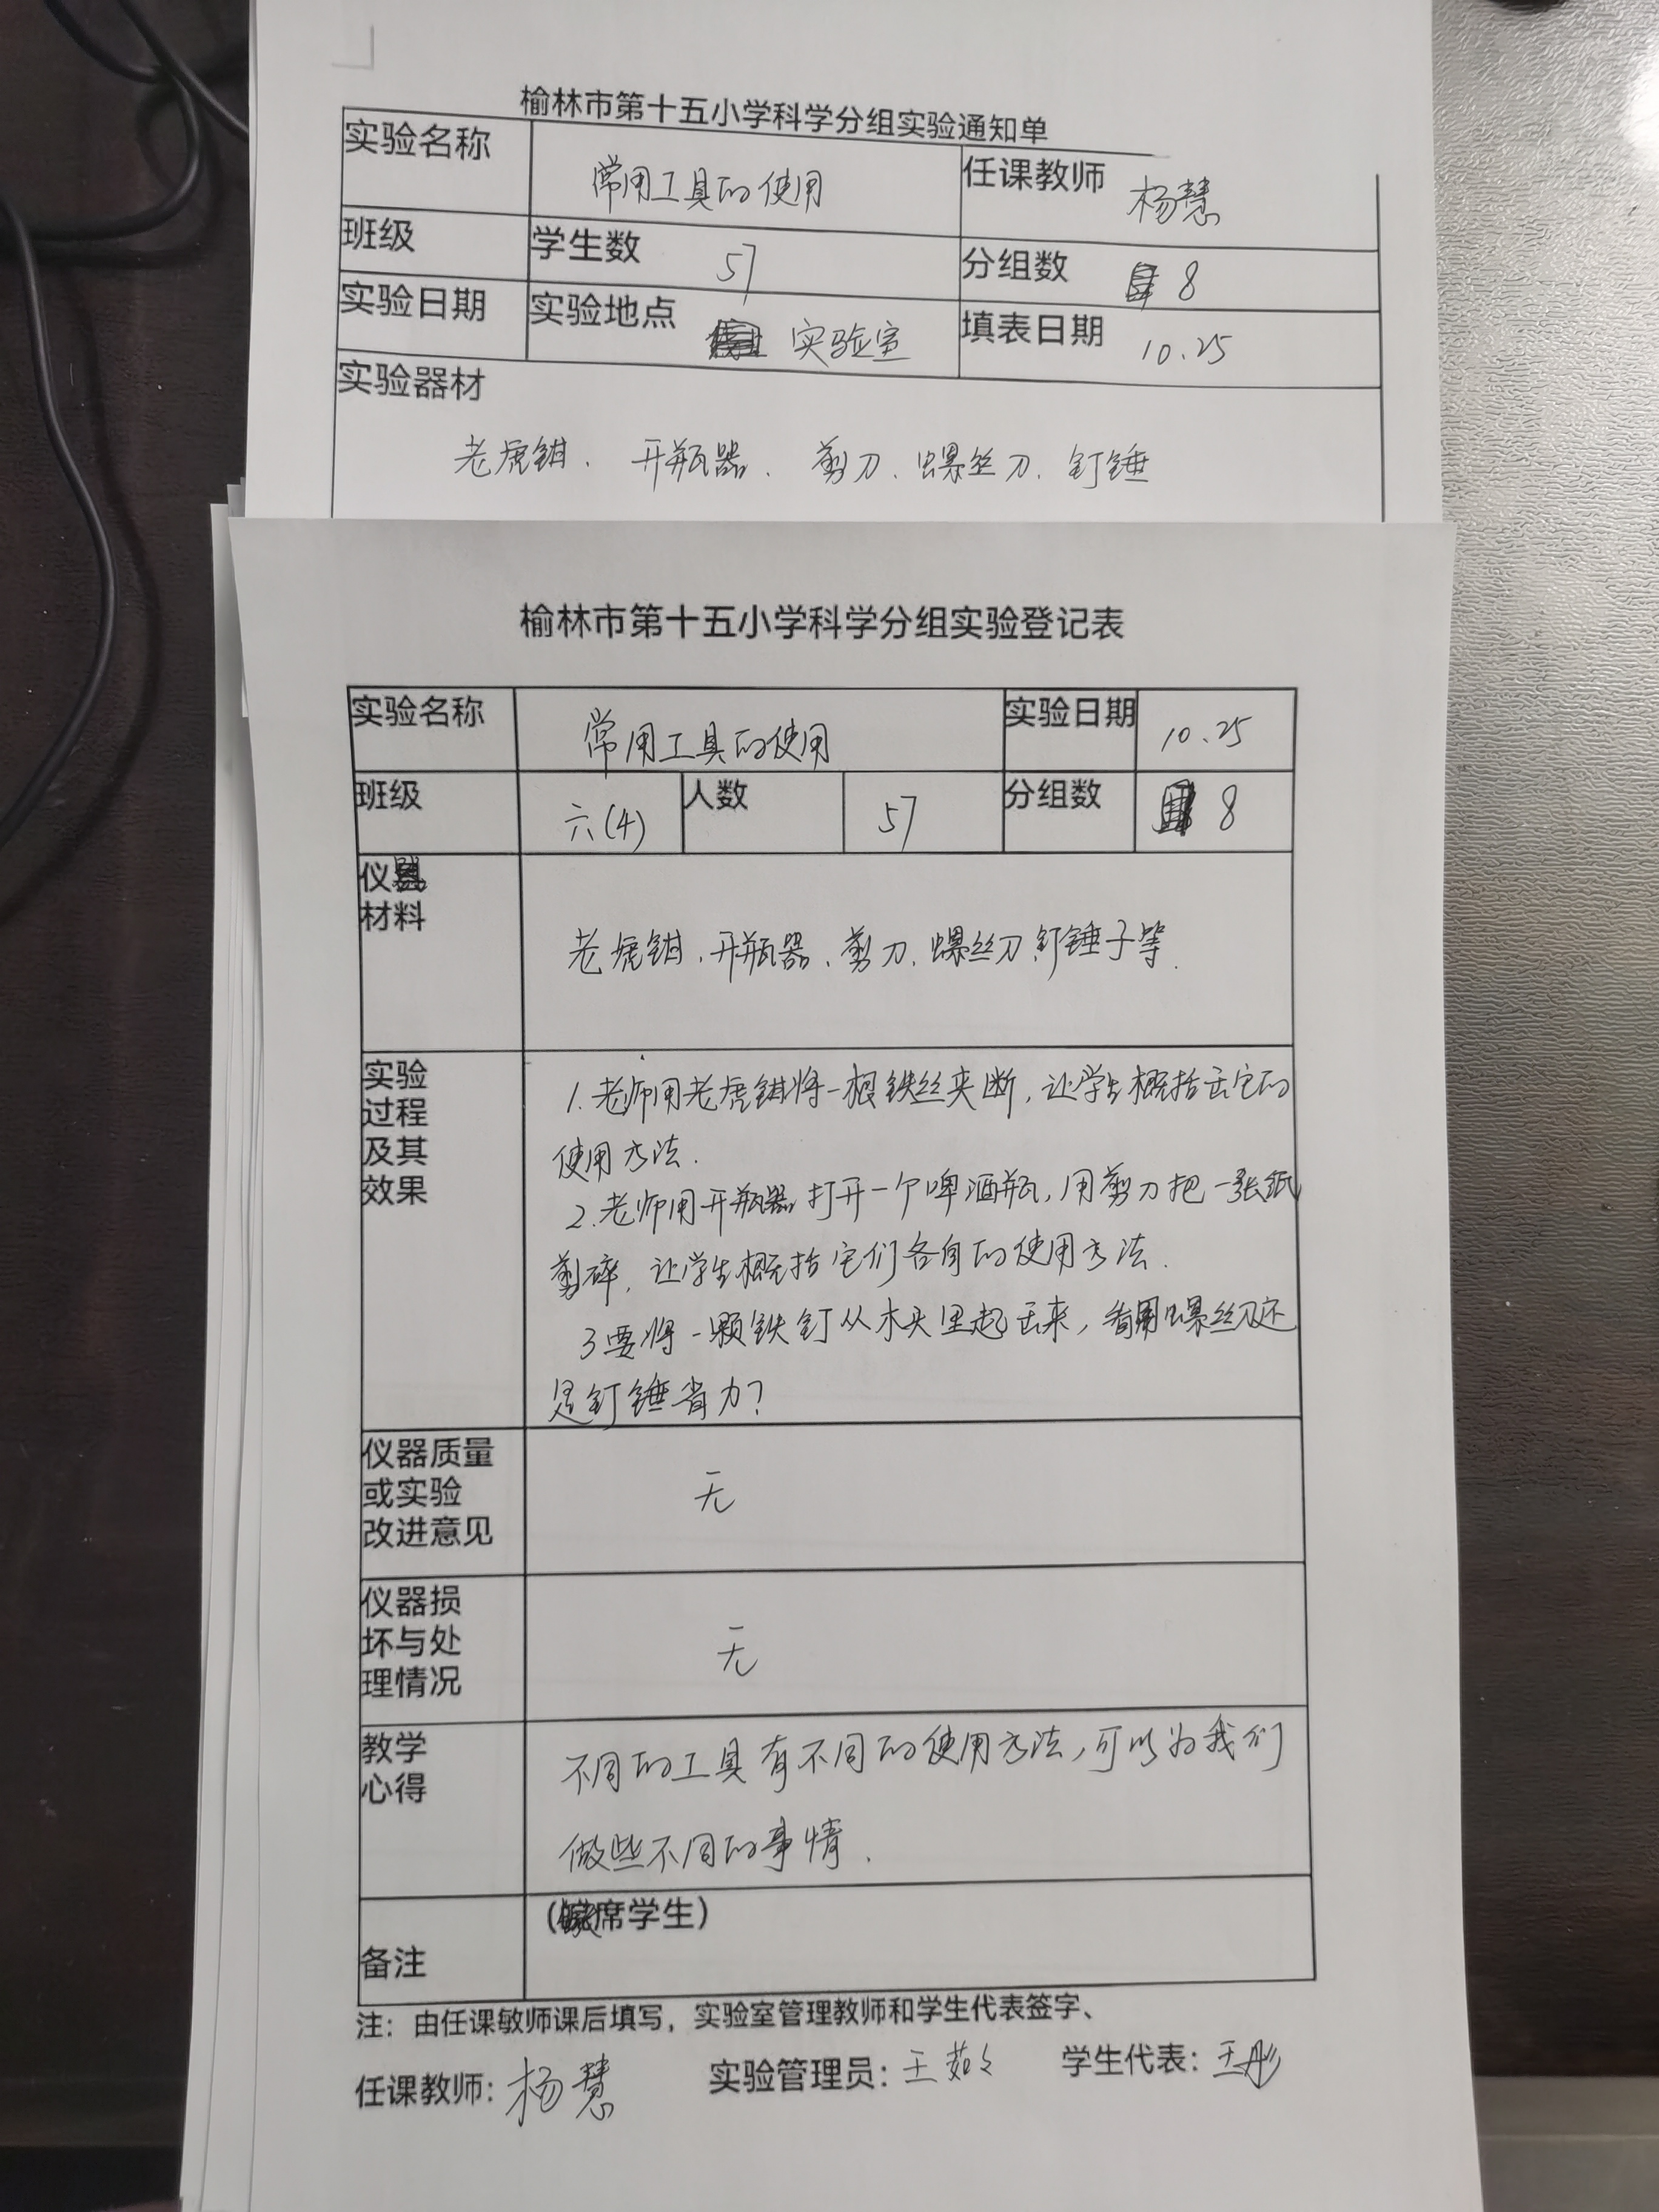 榆林市第十五小学科学分组实验通知单
实验名称 常用工具的使用 任课教师 杨慧
班级 学生数 57 分组数 8
实验日期 实验地点 实验室 填表日期 10.25
实验器材
老虎钳、开瓶器、剪刀、螺丝刀、钉锤
榆林市第十五小学科学分组实验登记表
实验名称 常用工具的使用 实验日期 10.25
班级 六(4) 人数 57 分组数 8
仪
材料
老虎钳、开瓶器、剪刀、螺丝刀、钉锤子等.
实验
过程
及其
效果
1.老师用老虎钳将一根铁丝夹断,让学生概括出它的
使用方法.
2.老师用开瓶器打开一个啤酒瓶,用剪刀把一张纸
剪碎,让学生概括它们各自的使用方法.
3要将一颗铁钉从木头里起出来,看用螺丝刀还
是钉锤省力?
仪器质量
或实验
改进意见
无
仪器损
坏与处
理情况
无
教学
心得
不同的工具有不同的使用方法,可以为我们
做些不同的事情.
备注
(席学生)
注：由任课敏师课后填写，实验室管理教师和学生代表签字、
任课教师：杨慧 实验管理员：王 学生代表：王彤